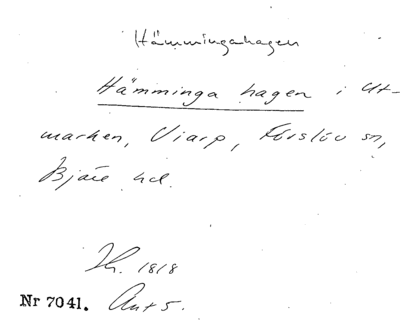 Hämmingahagen
Hämminga hagen i Ut-
marken, Viarp, Förslöv sn,
Bjäre hd.
Jh. 1818
Nr 7041. Ant 5.